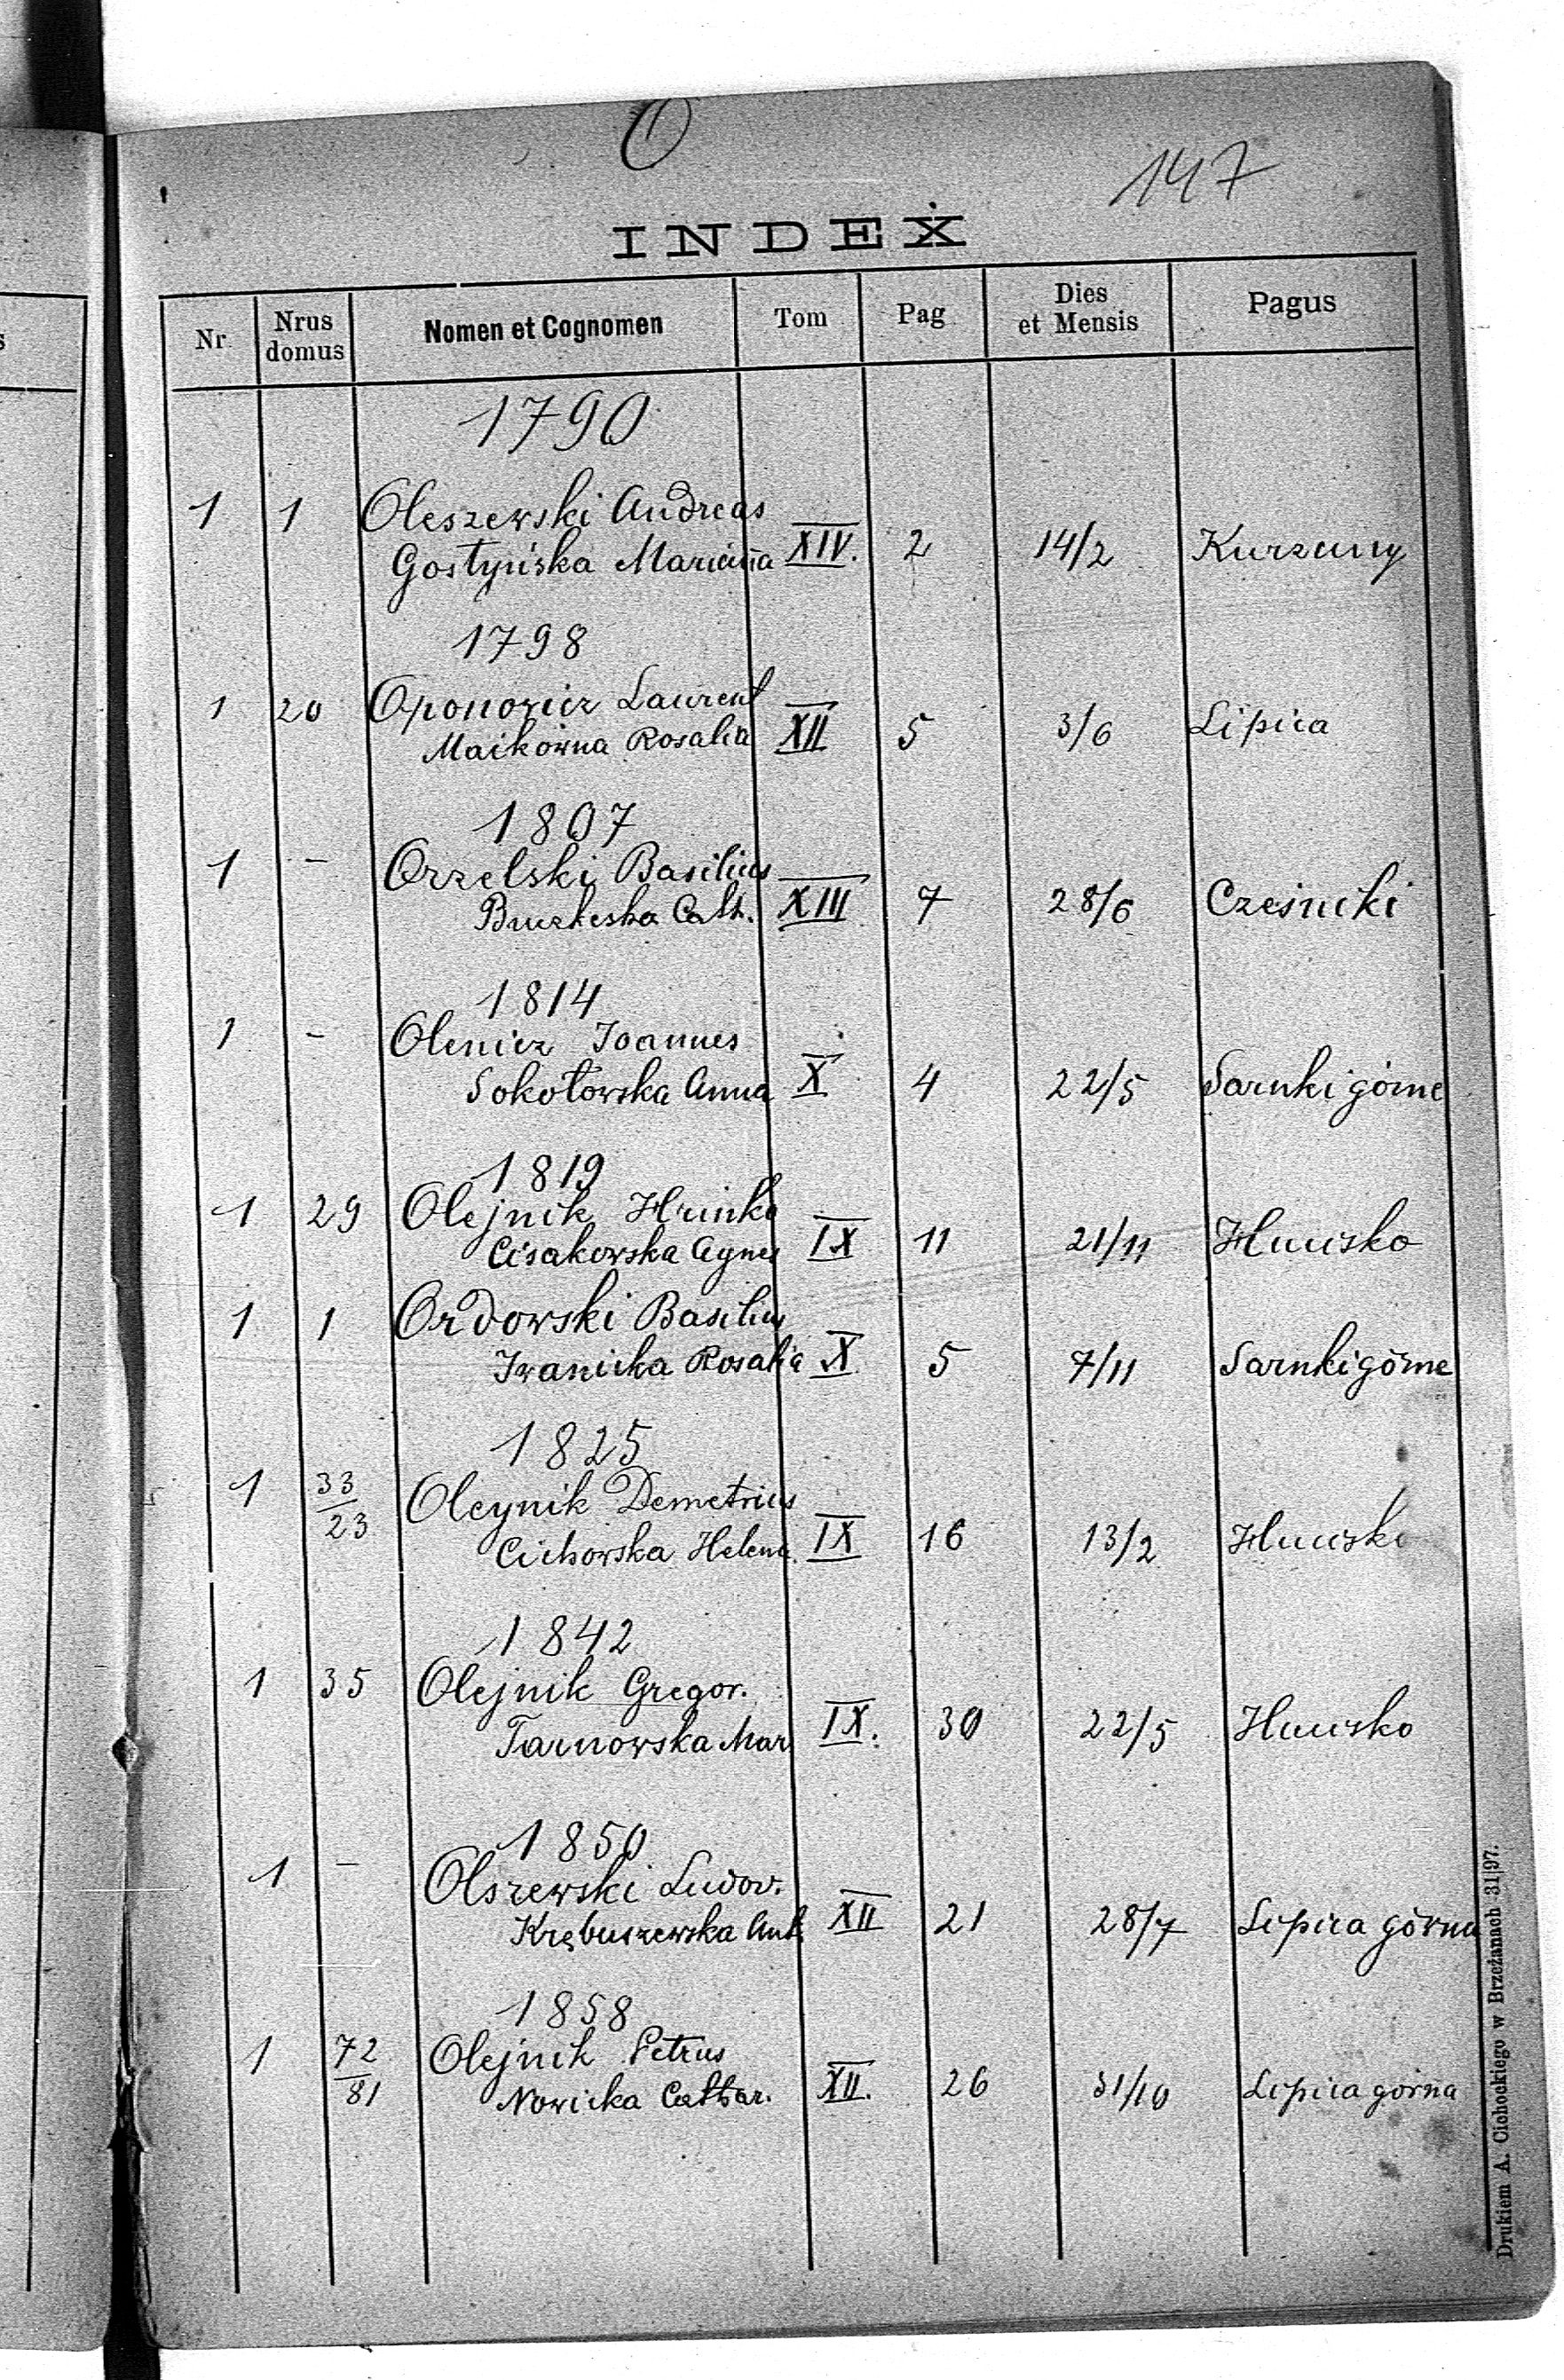 O
147
INDEX
Nr Nrus domus Nomen et Cognomen Tom Pag Dies et Mensis Pagus
1790
1 1 Oleszewski Andreas
Gostyńska Marianna XIV. 2 14/2 Kurzany
1798
1 20 Oponowicz Laurent
Maikówna Rosalia XII 5 3/6 Lipica
1807
1 - Orzelski Basilius
Cath. XIII 7 28/6 Cześniki
1814
1 - Olenicz Joannes
Sokołowska Anna X 4 22/5 Sarnki górne
1819
1 29 Olejnik Hrinko
Cisakowska Agnes IX 11 21/11 Hucisko
1 1 Ordowski Basilius
Iwanicka Rosalia X 5 7/11 Sarnki górne
1825
1 33/23 Oleynik Demetrius
Cichowska Helena IX 16 13/2 Hucisko
1842
1 35 Olejnik Gregor.
Tarnowska Mar IX. 30 22/5 Hucisko
1850
1 - Olszewski Ludov.
Krębuszewska Ant. XII 21 28/7 Lipica górna
1858
1 72/81 Olejnik Petrus
Nowicka Cathar. XII. 26 31/10 Lipica górna
Drukiem A. Cichockiego w Brzeżanach 31|97.